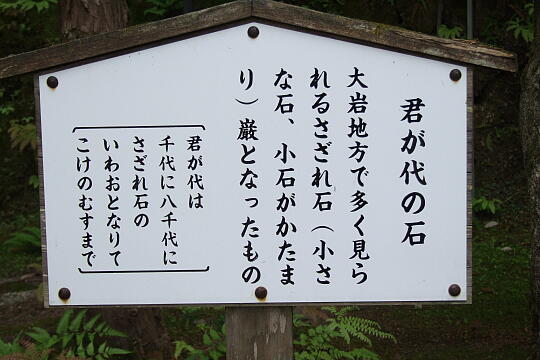 君が代の石
大岩地方で多く見ら
れるさざれ石（小さ
な石、小石がかたま
り）巌となったもの
君が代は
千代に八千代に
さざれ石の
いわおとなりて
こけのむすまで